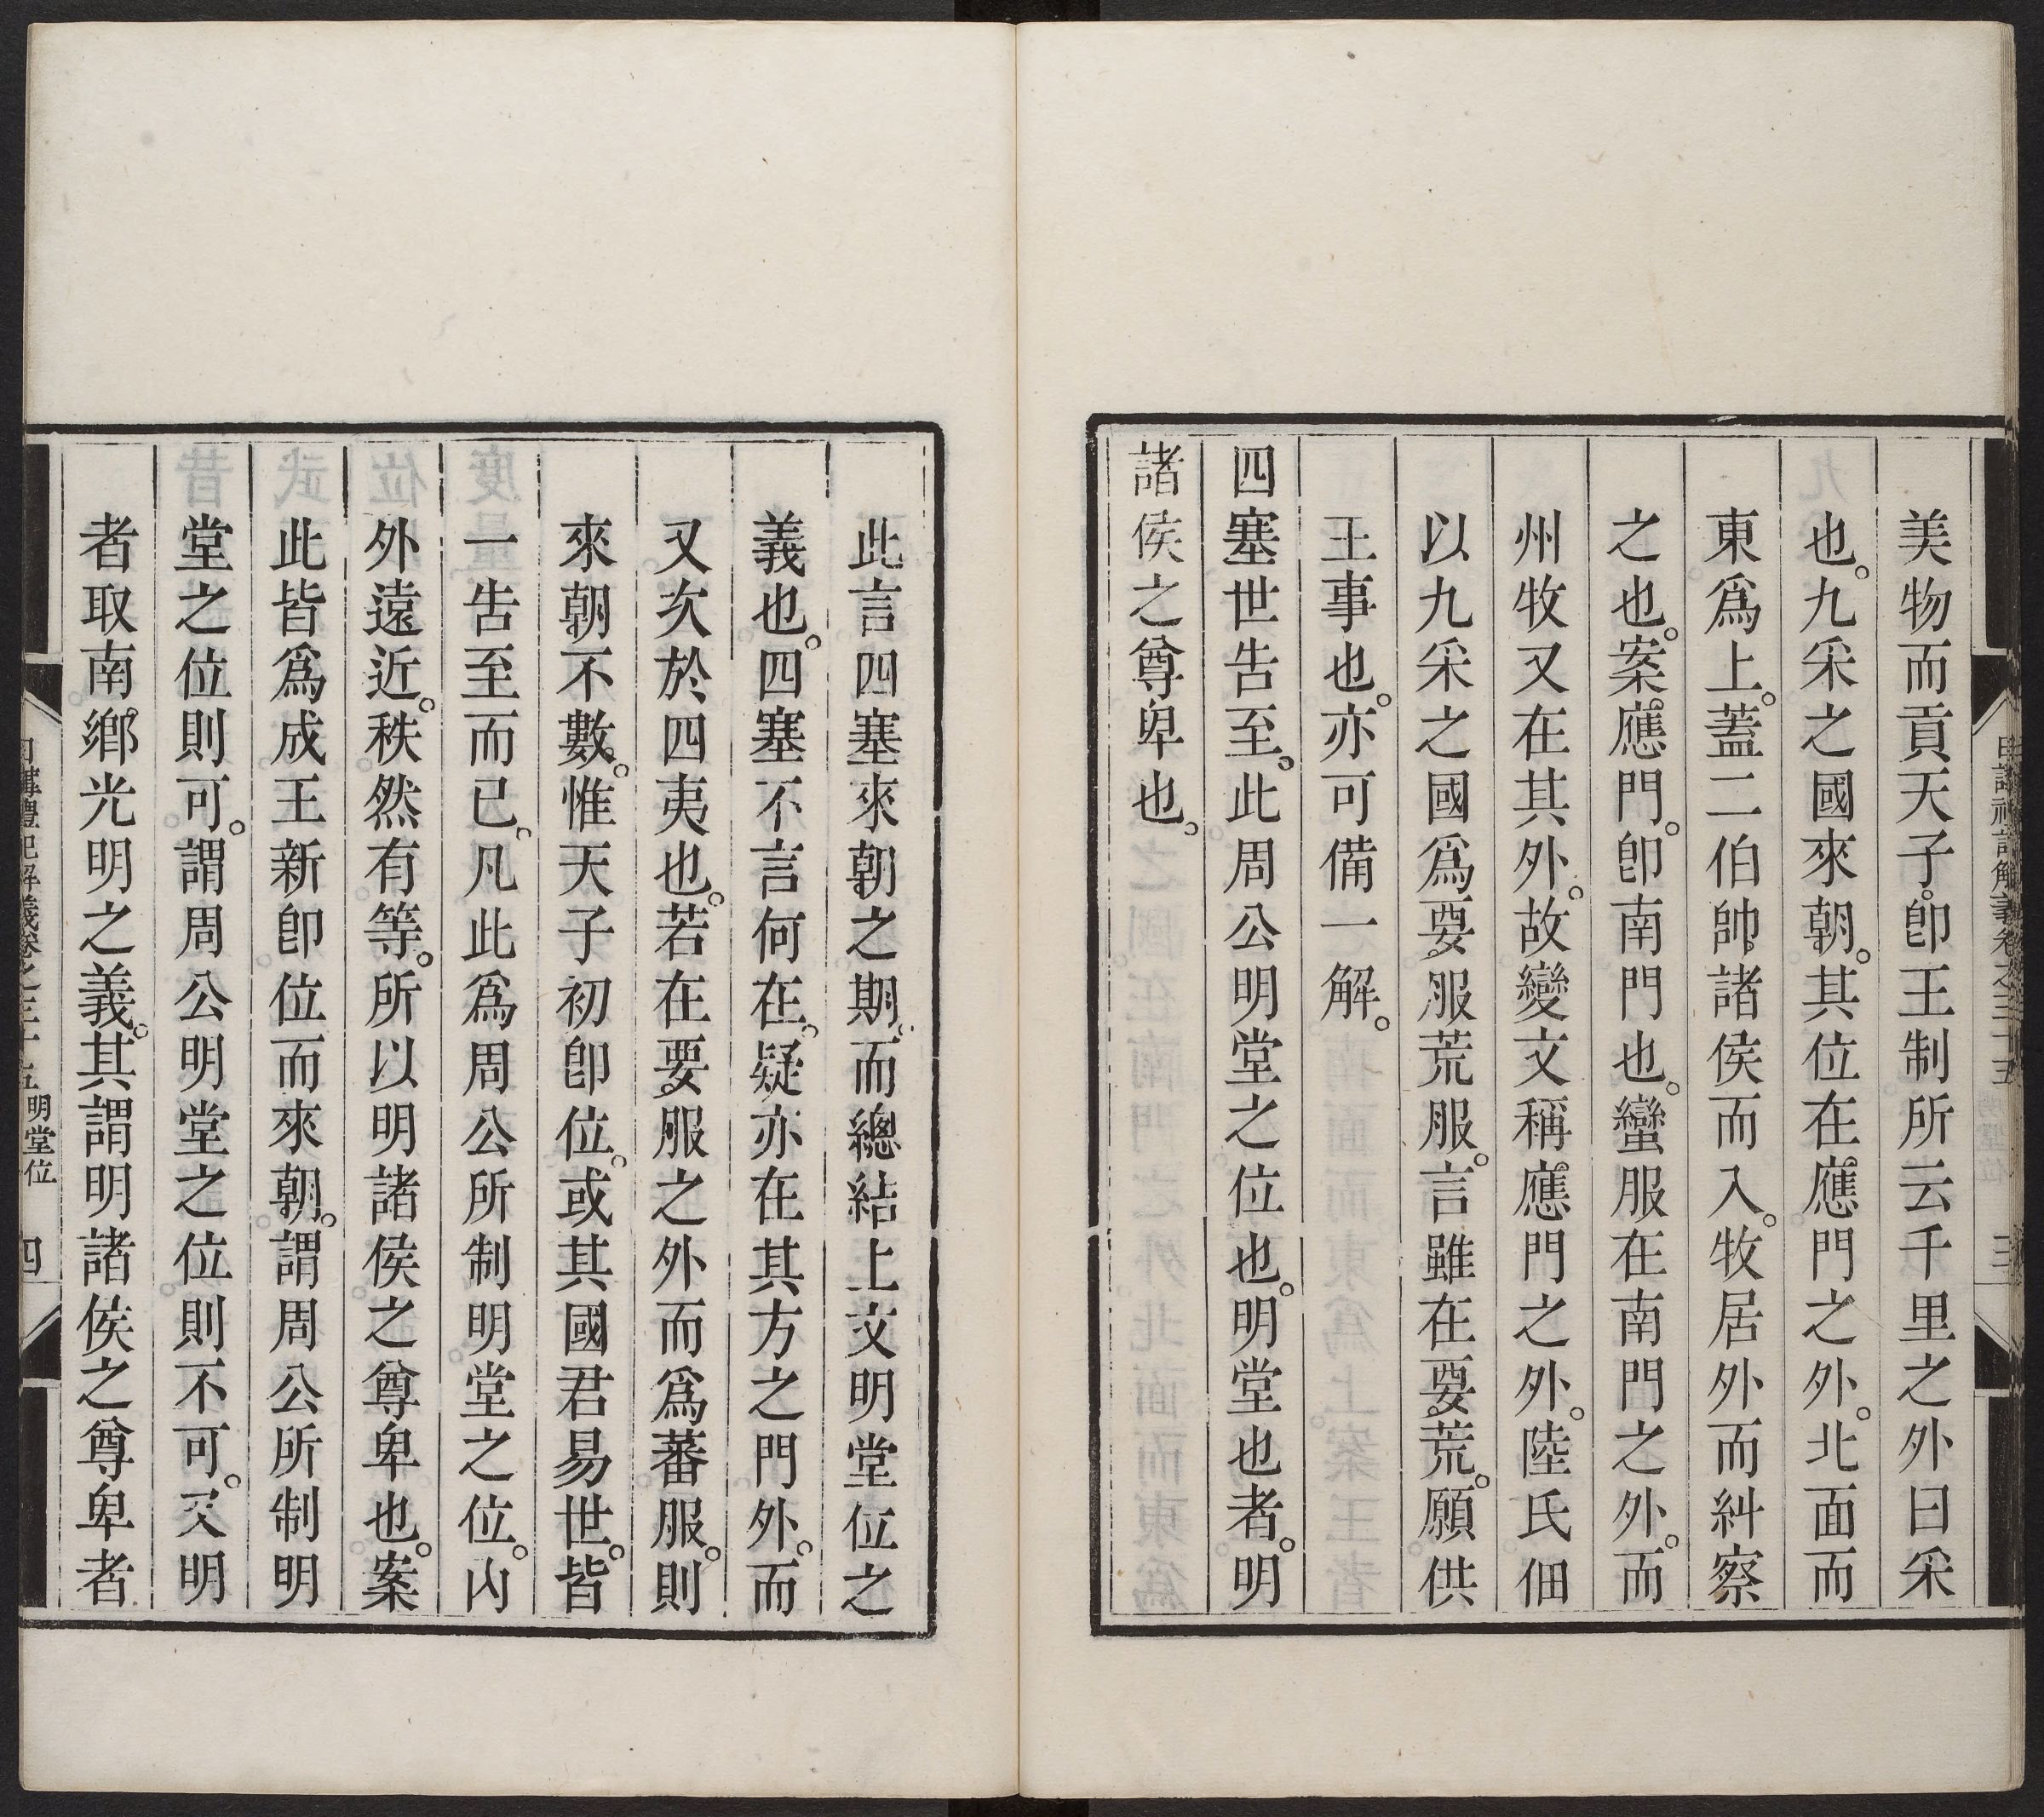 美物而貢天子。卽王制所云千里之外曰采
也。九采之國來朝。其位在應門之外。北面而
東爲上。蓋二伯帥諸侯而入。牧居外而糾察
之也。案應門。卽南門也。蠻服在南門之外。而
州牧又在其外。故變文稱應門之外。陸氏佃
以九采之國爲要服荒服。言雖在要荒。願供
王事也。亦可備一解。
四塞世告至。此周公明堂之位也。明堂也者。明
諸侯之尊卑也。
此言四塞來朝之期。而總結上文明堂位之
義也。四塞不言何在。疑亦在其方之門外。而
又次於四夷也。若在要服之外而爲蕃服。則
來朝不數。惟天子初卽位。或其國君易世。皆
一告至而已。凡此爲周公所制明堂之位。內
外遠近。秩然有等。所以明諸侯之尊卑也。案
此皆爲成王新卽位而來朝。謂周公所制明
堂之位則可。謂周公明堂之位則不可。又明
者取南鄉光明之義。其謂明諸侯之尊卑者
日講禮記解義卷之三十五 明堂位 三
日講禮記解義卷之三十五 明堂位 四